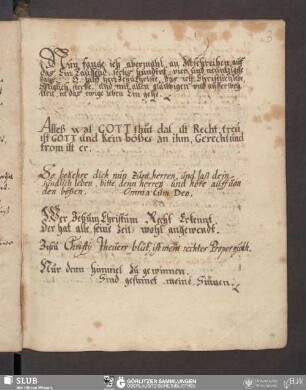 3
Nun fange ich abermahl, an Zuschreiben, auf
das Ein Tausend, sechs hundert, vier und neuntzigste
Jahr. O hilff herr Jesu Christe, das ich Christlich
Seliglich sterbe, und mit allen glaubigen und außerwel-
ten, in das ewige leben Ein gehe.
Alles was GOTT thut das ist Recht, treu
ist GOTT und Kein böses an ihm, Gerecht und
from ist er.
So bekehre dich nun zum herren, und laß dein
sündlich leben, bitte denn herren und höre auff von
den bösen. Omnia Cum Deo.
Wer Jesum Christum Recht Erkennt,
der hat alle seine Zeit wohl angewendt.
Jesu Christi theures blut, ist mein rechter
Nur denn himmel zu gewinnen.
Sind gesinnet meine Sinnen.
SLUB
Wir führen Wissen.
GÖRLITZER SAMMLUNGEN
OBERLAUSITZISCHE BIBLIOTHEK